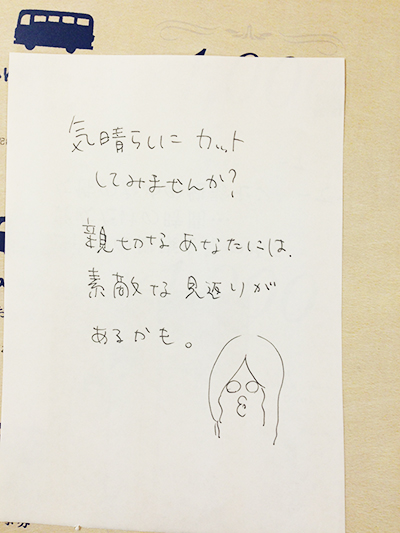 気晴らしに カット
してみませんか?
親切な あなたには、
素敵な 見返りが
あるかも。